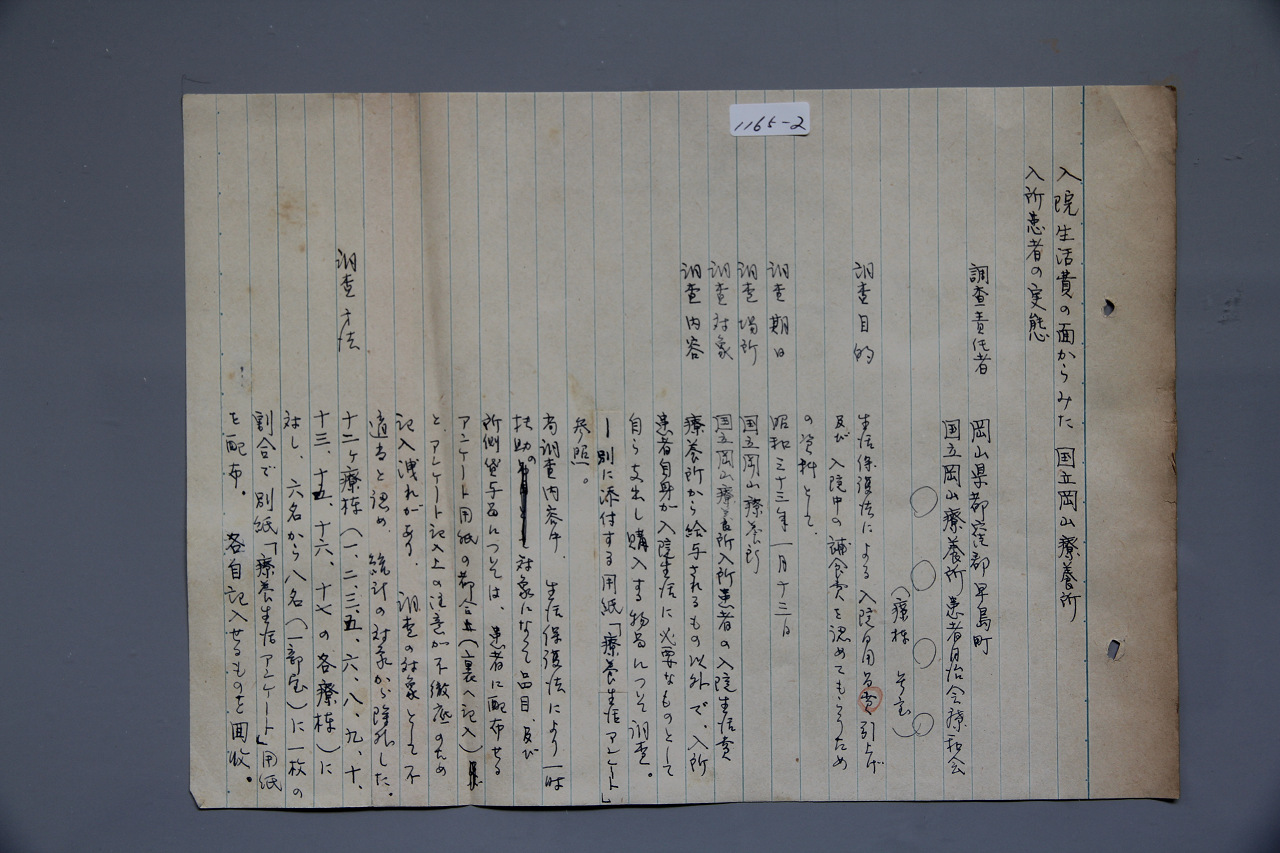 1165-2
入院生活費の面からみた国立岡山療養所
入所患者の実態
調査責任者 岡山県都窪郡早島町
国立岡山療養所患者自治会療和会
(療棟 号室)
調査目的 生活保護法による入院日用品費引上げ
及び入院中の補食費を認めてもらうため
の資料として
調査期日 昭和三十三年一月十三日
調査場所 国立岡山療養所
調査対象 国立岡山療養所入所患者の入院生活費
調査内容 療養所から給与されるもの以外で、入所
患者自身が入院生活に必要なものとして
自ら支出し購入する物品について調査。
―別に添付する用紙「療養生活アンケート」
参照。
尚調査内容中、生活保護法により一時
扶助の対象になって品目、及び
所側貸与品については、患者に配布せる
アンケート用紙の都合上(裏へ記入)
と、アンケート記入上の注意が不徹底のため
記入洩れがあり、調査の対象として不
適当と認め、統計の対象から除外した。
調査方法 十二ヶ療棟(一、二、三、五、六、八、九、十、
十三、十五、十六、十七の各療棟)に
対し、六名から八名(一部屋)に一枚の
割合で別紙「療養生活アンケート」用紙
を配布。各自記入せるものを回収。